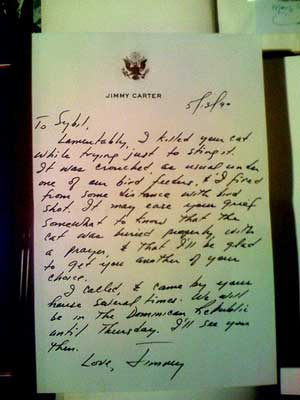 JIMMY CARTER
5/13/90
To Sybil,
Lamentably, I killed your cat
while trying just to sting it.
It was crouched, as usual under
one of our bird feeders, & I fired
from some distance with bird
shot. It may ease your grief
somewhat to know that the
cat was buried properly with
a prayer, & that I'll be glad
to get you another of your
choice.
I called, & came by your
house several times. We will
be in the Dominican Republic
until Thursday. I'll see you
then.
Love, Jimmy